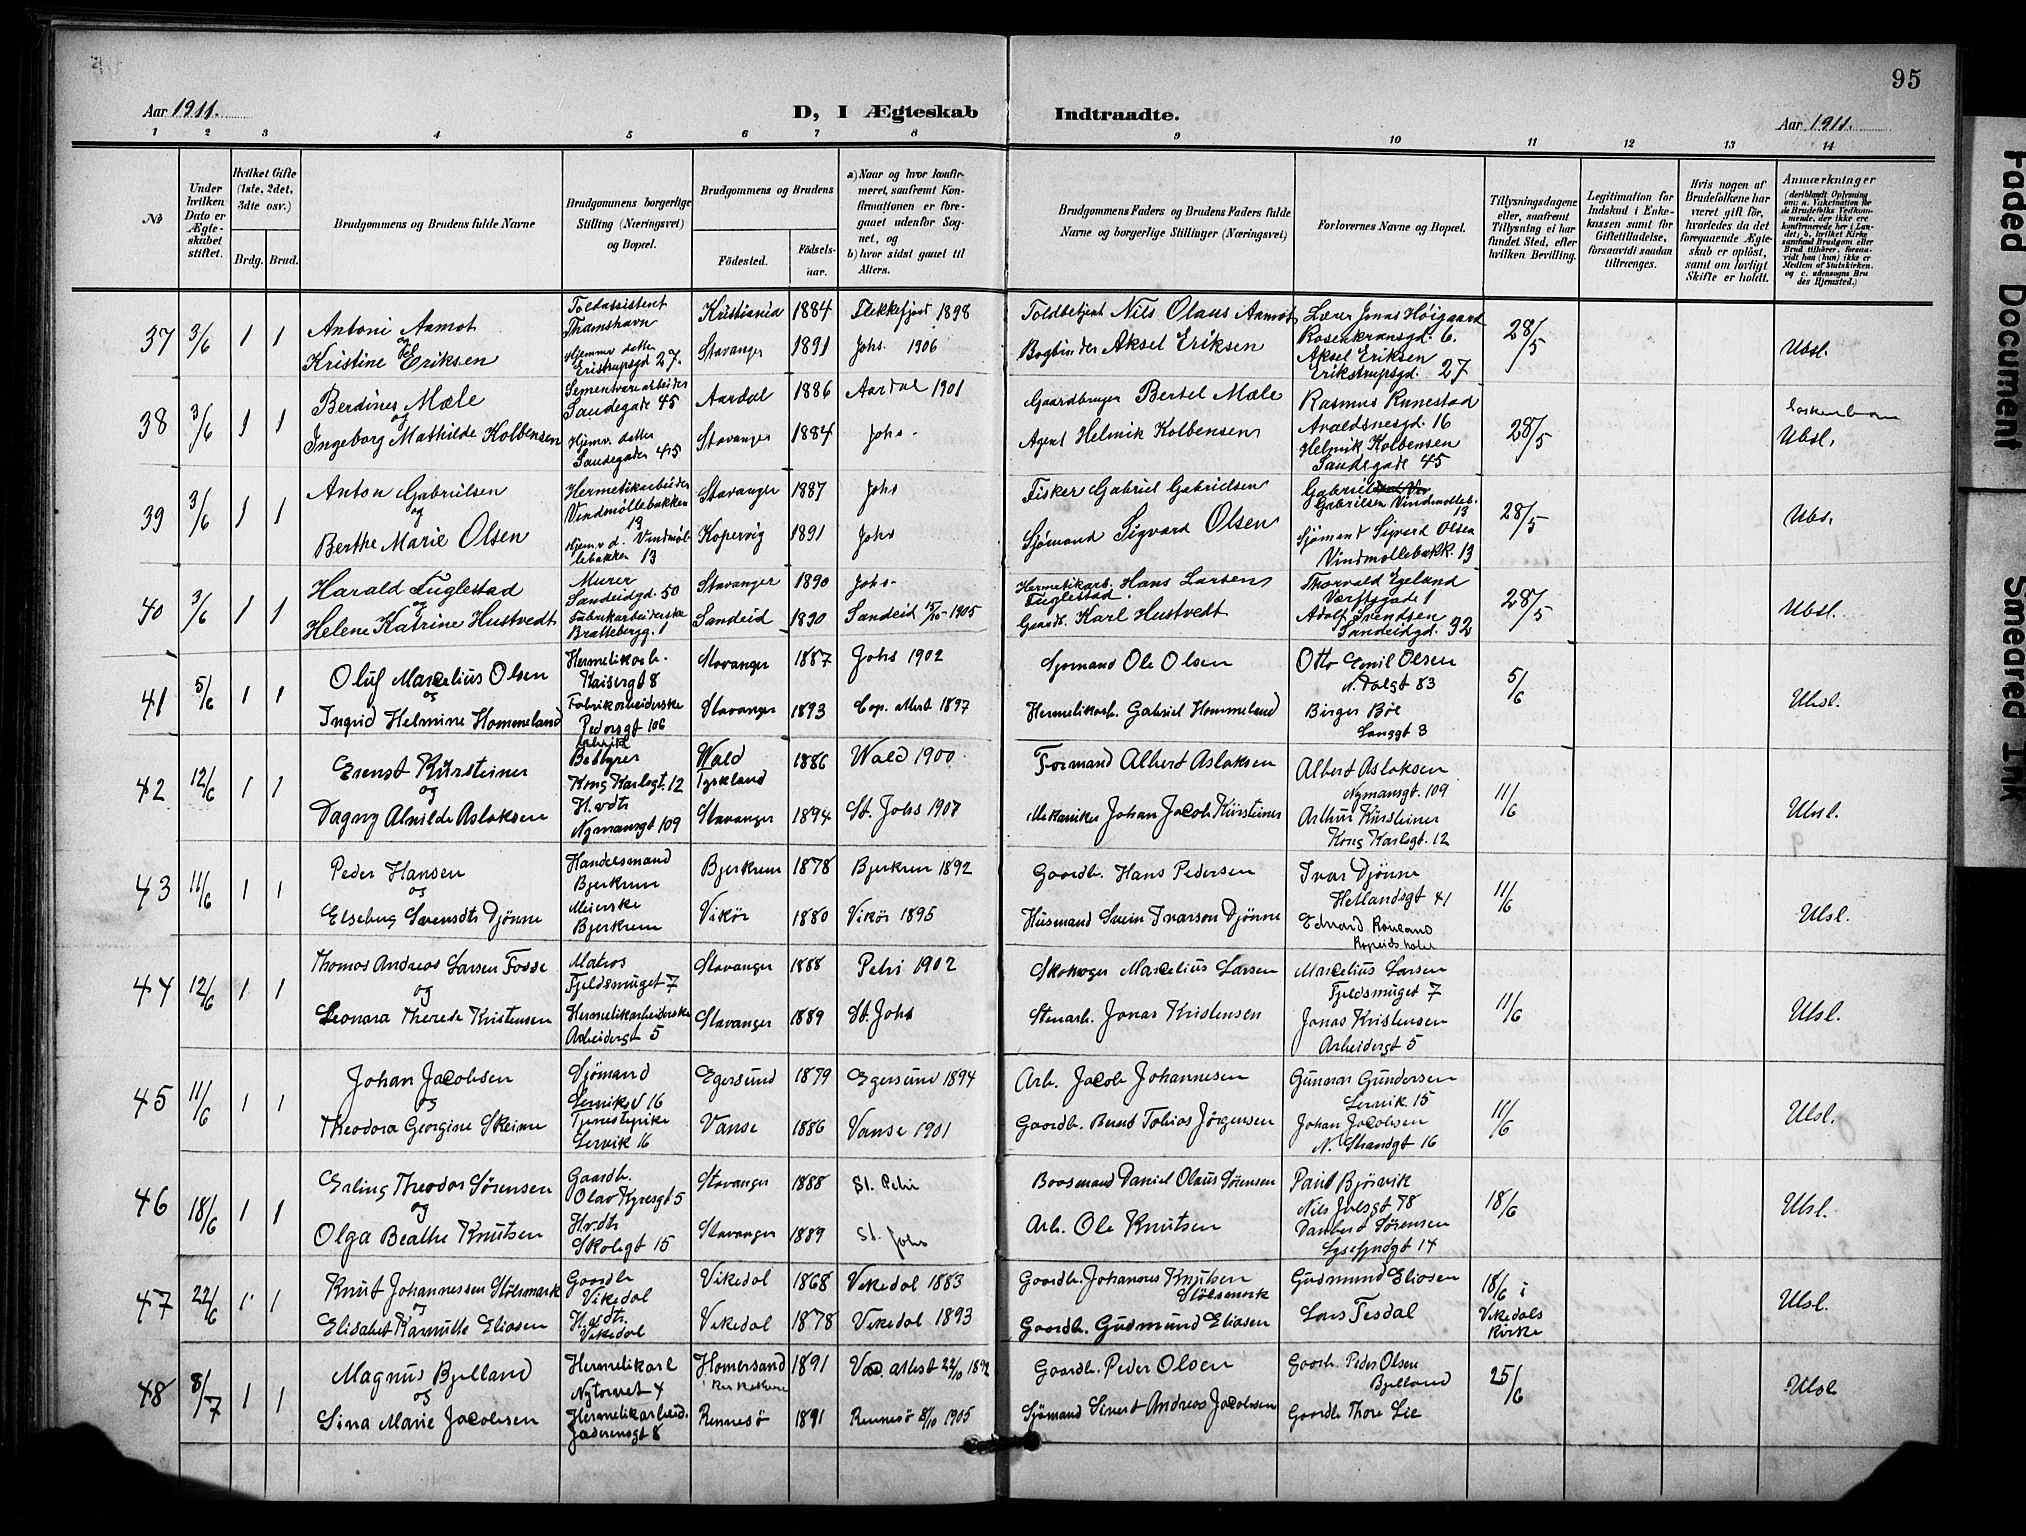 95
Aar 1911.
D, I Ægteskab Indtraadte.
Aar 1911.
1 2 3 4 5 6 7 8 9 10 11 12 13 14
No
Under hvilken Dato er Ægteskabet stiftet.
Hvilket Gifte (1ste, 2det, 3dte osv.)
Brdg. Brud.
Brudgommens og Brudens fulde Navne
Brudgommens borgerlige Stilling (Næringsvei) og Bopæl.
Brudgommens og Brudens
Fødested.
Fødselsaar.
a) Naar og hvor konfirmeret, saafremt Konfirmationen er foregaaet udenfor Sognet, og
b) hvor sidst gaaet til Alters.
Brudgommens Faders og Brudens Faders fulde Navne og borgerlige Stillinger (Næringsvei)
Forlovernes Navne og Bopæl.
Tillysningsdagene eller, saafremt Tillysning ei har fundet Sted, efter hvilken Bevilling.
Legitimation for Indskud i Enkekassen samt for Giftetilladelse, forsaavidt saadan tiltrænges.
Hvis nogen af Brudefolkene har været gift før, hvorledes da det foregaaende Ægteskab er opløst, samt om lovligt Skifte er holdt.
Anmærkninger
37 3/6 1 1
Antoni Aamot
og
Kristine Eriksen
Toldassistent
Thamshavn
Hjemmv. datter
Eristrupsgd 27.
Kristiania 1884 Flekkefjord 1898
Stavanger 1891 Johs. 1906
Toldbetjent Nils Olaus Aamot
Bogbinder Aksel Eriksen
Lærer Jonas Höigaard
Rosenkransgd. 6.
Aksel Eriksen
Erikstrupsgd. 27
28/5
Ubsl.
38 3/6 1 1
Berdines Mæle
og
Ingeborg Mathilde Kolbensen
Sementvarearbeider
Sandegade 45
Hjemv. datter
Sandegade 45
Aardal 1886 Aardal 1901
Stavanger 1884 Johs.
Gaardbruger Bertel Mæle
Agent Helmik Kolbensen
Rasmus Runestad
Avaldsnesgd. 16
Helmik Kolbensen
Sandegade 45
28/5
Ubsl.
39 3/6 1 1
Anton Gabrielsen
og
Berthe Marie Olsen
Hermetikarbeider
Vindmøllebakken
13
Hjemv. d. Vindmöl
lebakken 13
Stavanger 1887 Johs
Kopervig 1891 Johs
Fisker Gabriel Gabrielsen
Sjømand Sigvard Olsen
Gabriel
Gabrielsen Vindmølleb.
13
Sjømand Sigvard Olsen
Vindmøllebakk. 13
28/5
Ubs.
40 3/6 1 1
Harald Fuglestad
og
Helene Katrine Hustvedt
Murer
Sandeidgd. 50
Fabrikarbeiderske
Brattebergg. 1
Stavanger 1890 Johs.
Sandeid 1890 Sandeid 15/10 1905
Hermetikarb. Hans Larsen
Fuglestad.
Gaardb. Karl Hustvedt
Thorvald Egeland
Værftsgade 1
Adolf Svendsen
Sandeidgd. 92
28/5
Ubsl.
41 5/6 1 1
Oluf Marcelius Olsen
og
Ingrid Helmine Hommeland
Hermetikarb.
Kaisergt 8
Fabrikarbeiderske
Pedersgt 106
Stavanger 1887 Johs 1902
Stavanger 1893 Cop. attest 1897
Sjømand Ole Olsen
Hermetikarb. Gabriel Hommeland
Otto Emil Olsen
N. Dalsgt 83
Birger Böe
Langgt 3
5/6
Ubsl.
42 12/6 1 1
Ernst Kürsteiner
og
Dagny Alvilde Aslaksen
Fabrik
Bestyrer
Kong Karlsgt. 12
H. vdtr
Nymansgt 109
Wald
Tyskland
1886 Wald 1900
Stavanger 1894 St. Johs 1907
Formand Albert Aslaksen
Mekaniker Johan Jacob Kürsteiner
Albert Aslaksen
Nymansgt. 109
Arthur Kürsteiner
Kong Karlsgt. 12
11/6
Ubsl.
43 11/6 1 1
Peder Hansen
og
Elseberg Svensdtr Djönne
Handelsmand
Bjerkrem
Meierske
Bjerkrem
Bjerkrem 1878 Bjerkrem 1892
Vikör 1880 Vikör 1895
Gaardb. Hans Pedersen
Husmand Svein Ivarson Djönne
Ivar Djönne
Hetlandsgt 41
Edvard
11/6
Ubsl.
44 12/6 1 1
Thomas Andreas Larsen Fosse
og
Leonora Therese Kristensen
Matros
Fjeldsmuget 7
Hermetikarbeiderske
Arbeidergt 5
Stavanger 1888 Petri 1902
Stavanger 1889 St. Johs
Skomager Marcelius Larsen
Stenarb. Jonas Kristensen
Marcelius Larsen
Fjeldsmuget 7
Jonas Kristensen
Arbeidergt 5
11/6
Ubsl.
45 11/6 1 1
Johan Jacobsen
og
Theodora Georgine Skeime
Sjömand
Lervik 16
Tjenestepike
Lervik 16
Egersund 1879 Egersund 1894
Vanse 1886 Vanse 1901
Arb. Jacob Johannesen
Gaardb. Bernt Tobias Jörgensen
Gunnar Gundersen
Lervik. 15
Johan Jacobsen
N. Strandgt 16
11/6
Ubsl.
46 18/6 1 1
Erling Theodor Sörensen
og
Olga Beathe Knutsen
Gaardb.
Olav Kyresgt 5
Hvdtr
Skolegt 15
Stavanger 1888 St. Petri
Stavanger 1889 St. Johs
Baasmand Daniel Olaus Sörensen
Arb. Ole Knutsen
Paul Björvik
Nils Juelsgt 78
Sörensen
Lysefjordgt 14
18/6
Ubsl.
47 22/6 1 1
Knut Johannessen Stölsmark
og
Elisabet Eliasen
Gaardb
Vikedal
H. vdtr.
Vikedal
Vikedal 1868 Vikedal 1883
Vikedal 1878 Vikedal 1893
Gaardb. Johannes Knutsen
Stölsmark
Gaardb. Gudmund Eliasen
Gudmund Eliasen
Lars Tesdal
18/6 i
Vikedals
Kirke
Ubsl.
48 8/7 1 1
Magnus Bjelland
og
Sina Marie Jacobsen
Hermetikarb
Nytorvet 4
Hermetikarbeid.
Jaderensgt 8
Homersand 1891 Vac. attest 22/10 1892
Rennesö 1891 Rennesö 8/10 1905
Gaardb. Peder Olsen
Sjömand Sivert Andreas Jacobsen
Gaardb. Peder Olsen
Bjelland
Gaardb Thore Lie
25/6
Ubsl
Faded Document
Smeared Ink